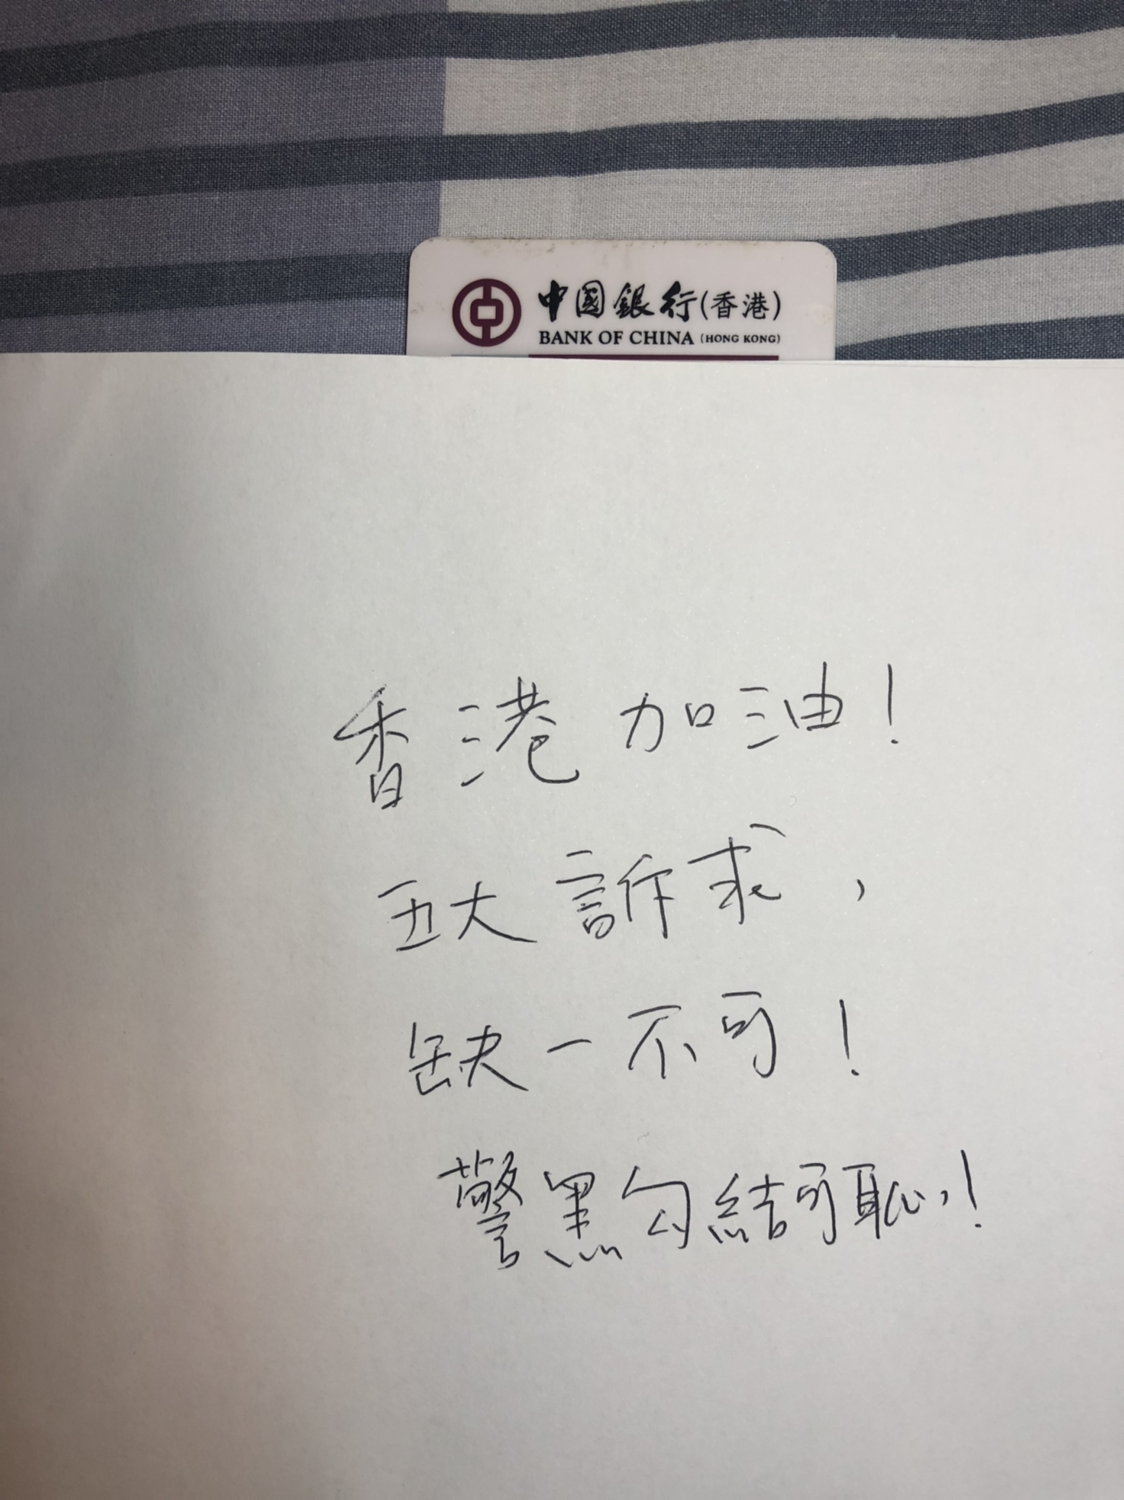 中国銀行(香港)
BANK OF CHINA (HONG KONG)
香港加油!
五大訴求,
缺一不可!
警黑勾結可恥,!